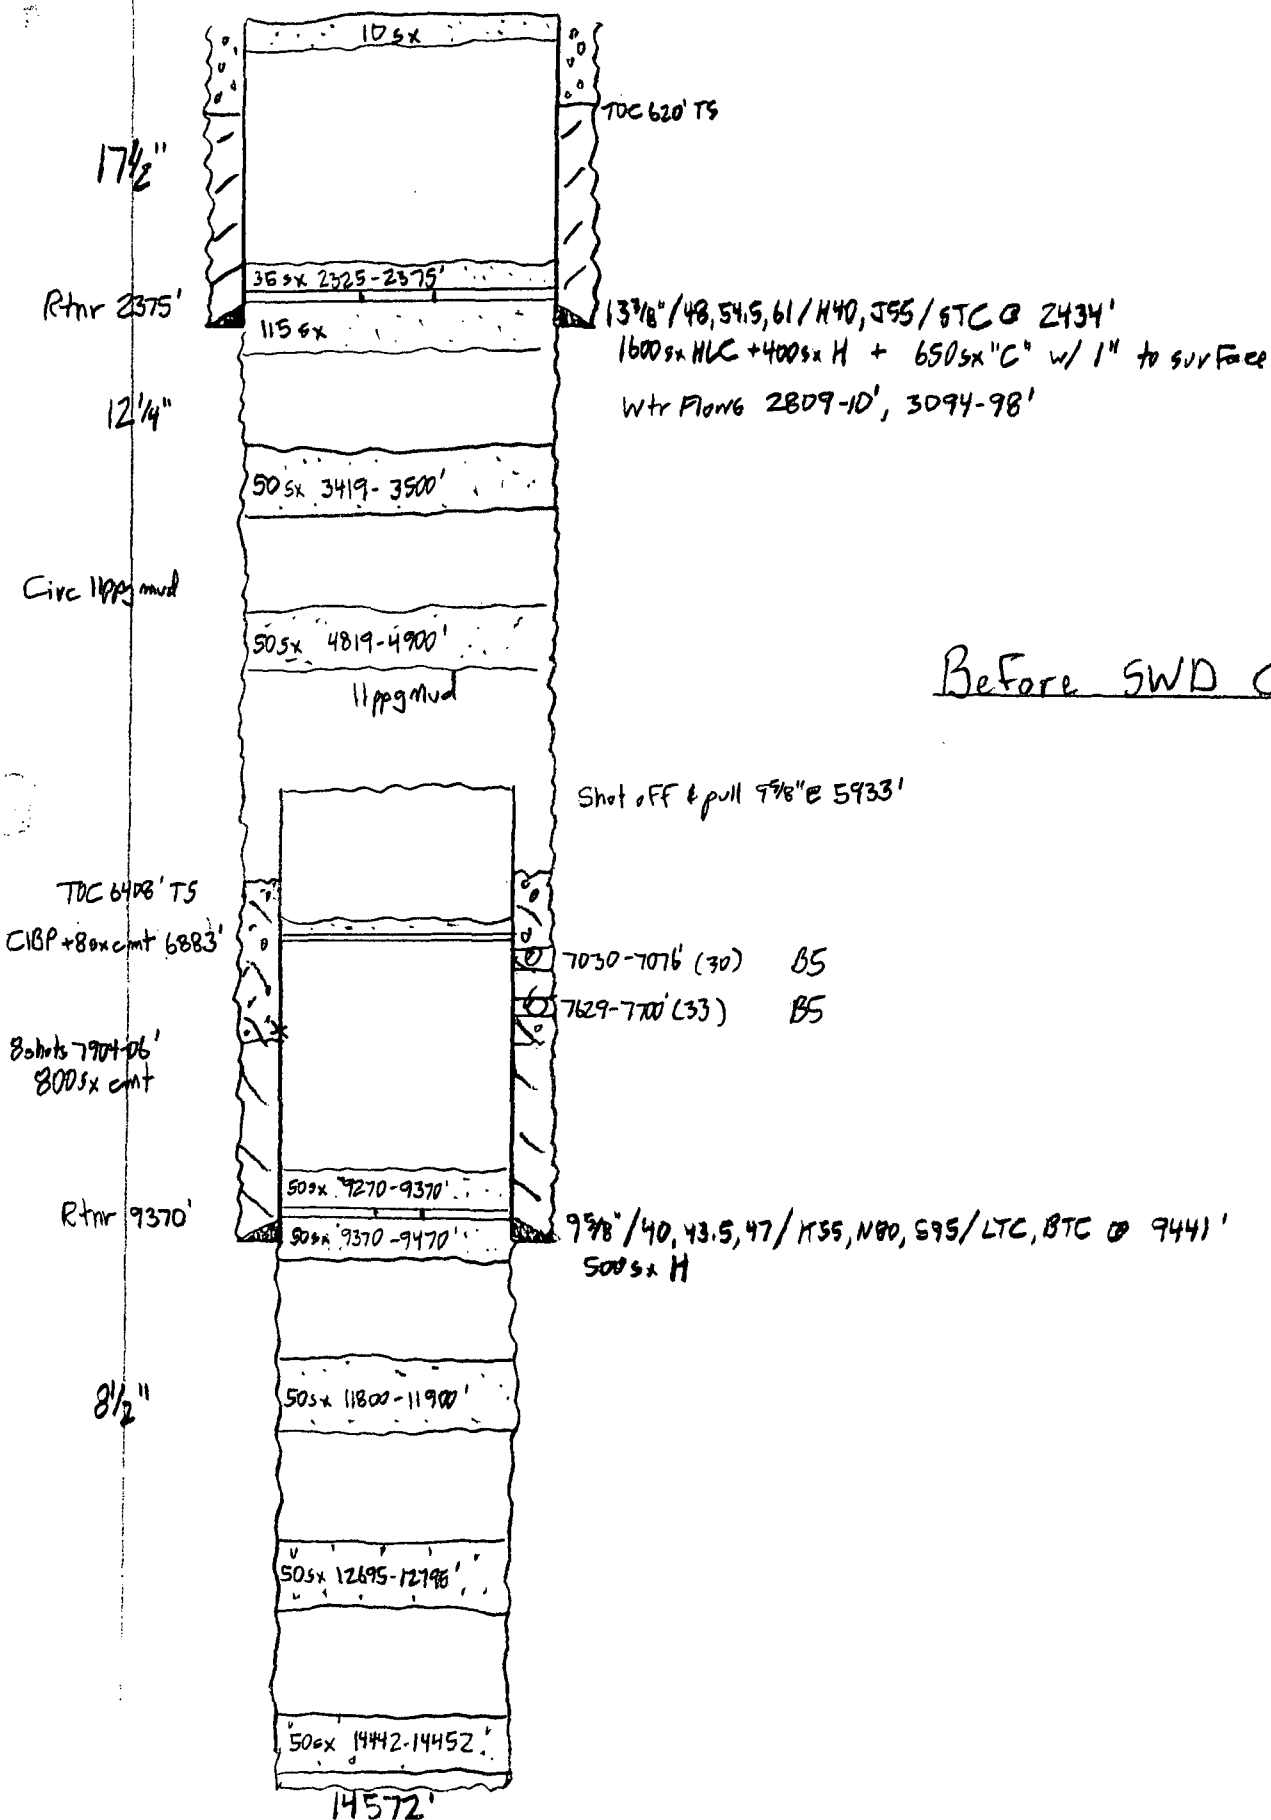 10 sx
TOC 620' TS
17 1/2"
35 sx 2325-2375'
Rtnr 2375'
115 sx
13 3/8" / 48, 54.5, 61 / H40, J55 / STC @ 2434'
1600 sx HLC + 400 sx H + 650 sx "C" w/ 1" to surface
Wtr Flows 2809-10', 3094-98'
12 1/4"
50 sx 3419-3500'
Circ 11ppg mud
50 sx 4819-4900'
11 ppg Mud
Before SWD C
Shot off & pull 9 5/8" @ 5933'
TOC 6408' TS
CIBP + 8 sx cmt 6883'
7030-7076' (30) BS
7629-7700' (33) BS
8 shots 7904-06'
800 sx cmt
50 sx 9270-9370'
Rtnr 9370'
50 sx 9370-9470'
9 5/8" / 40, 43.5, 47 / K55, N80, S95 / LTC, BTC @ 9441'
500 sx H
8 1/2"
50 sx 11800-11900'
50 sx 12695-12795'
50 sx 14442-14452'
14572'